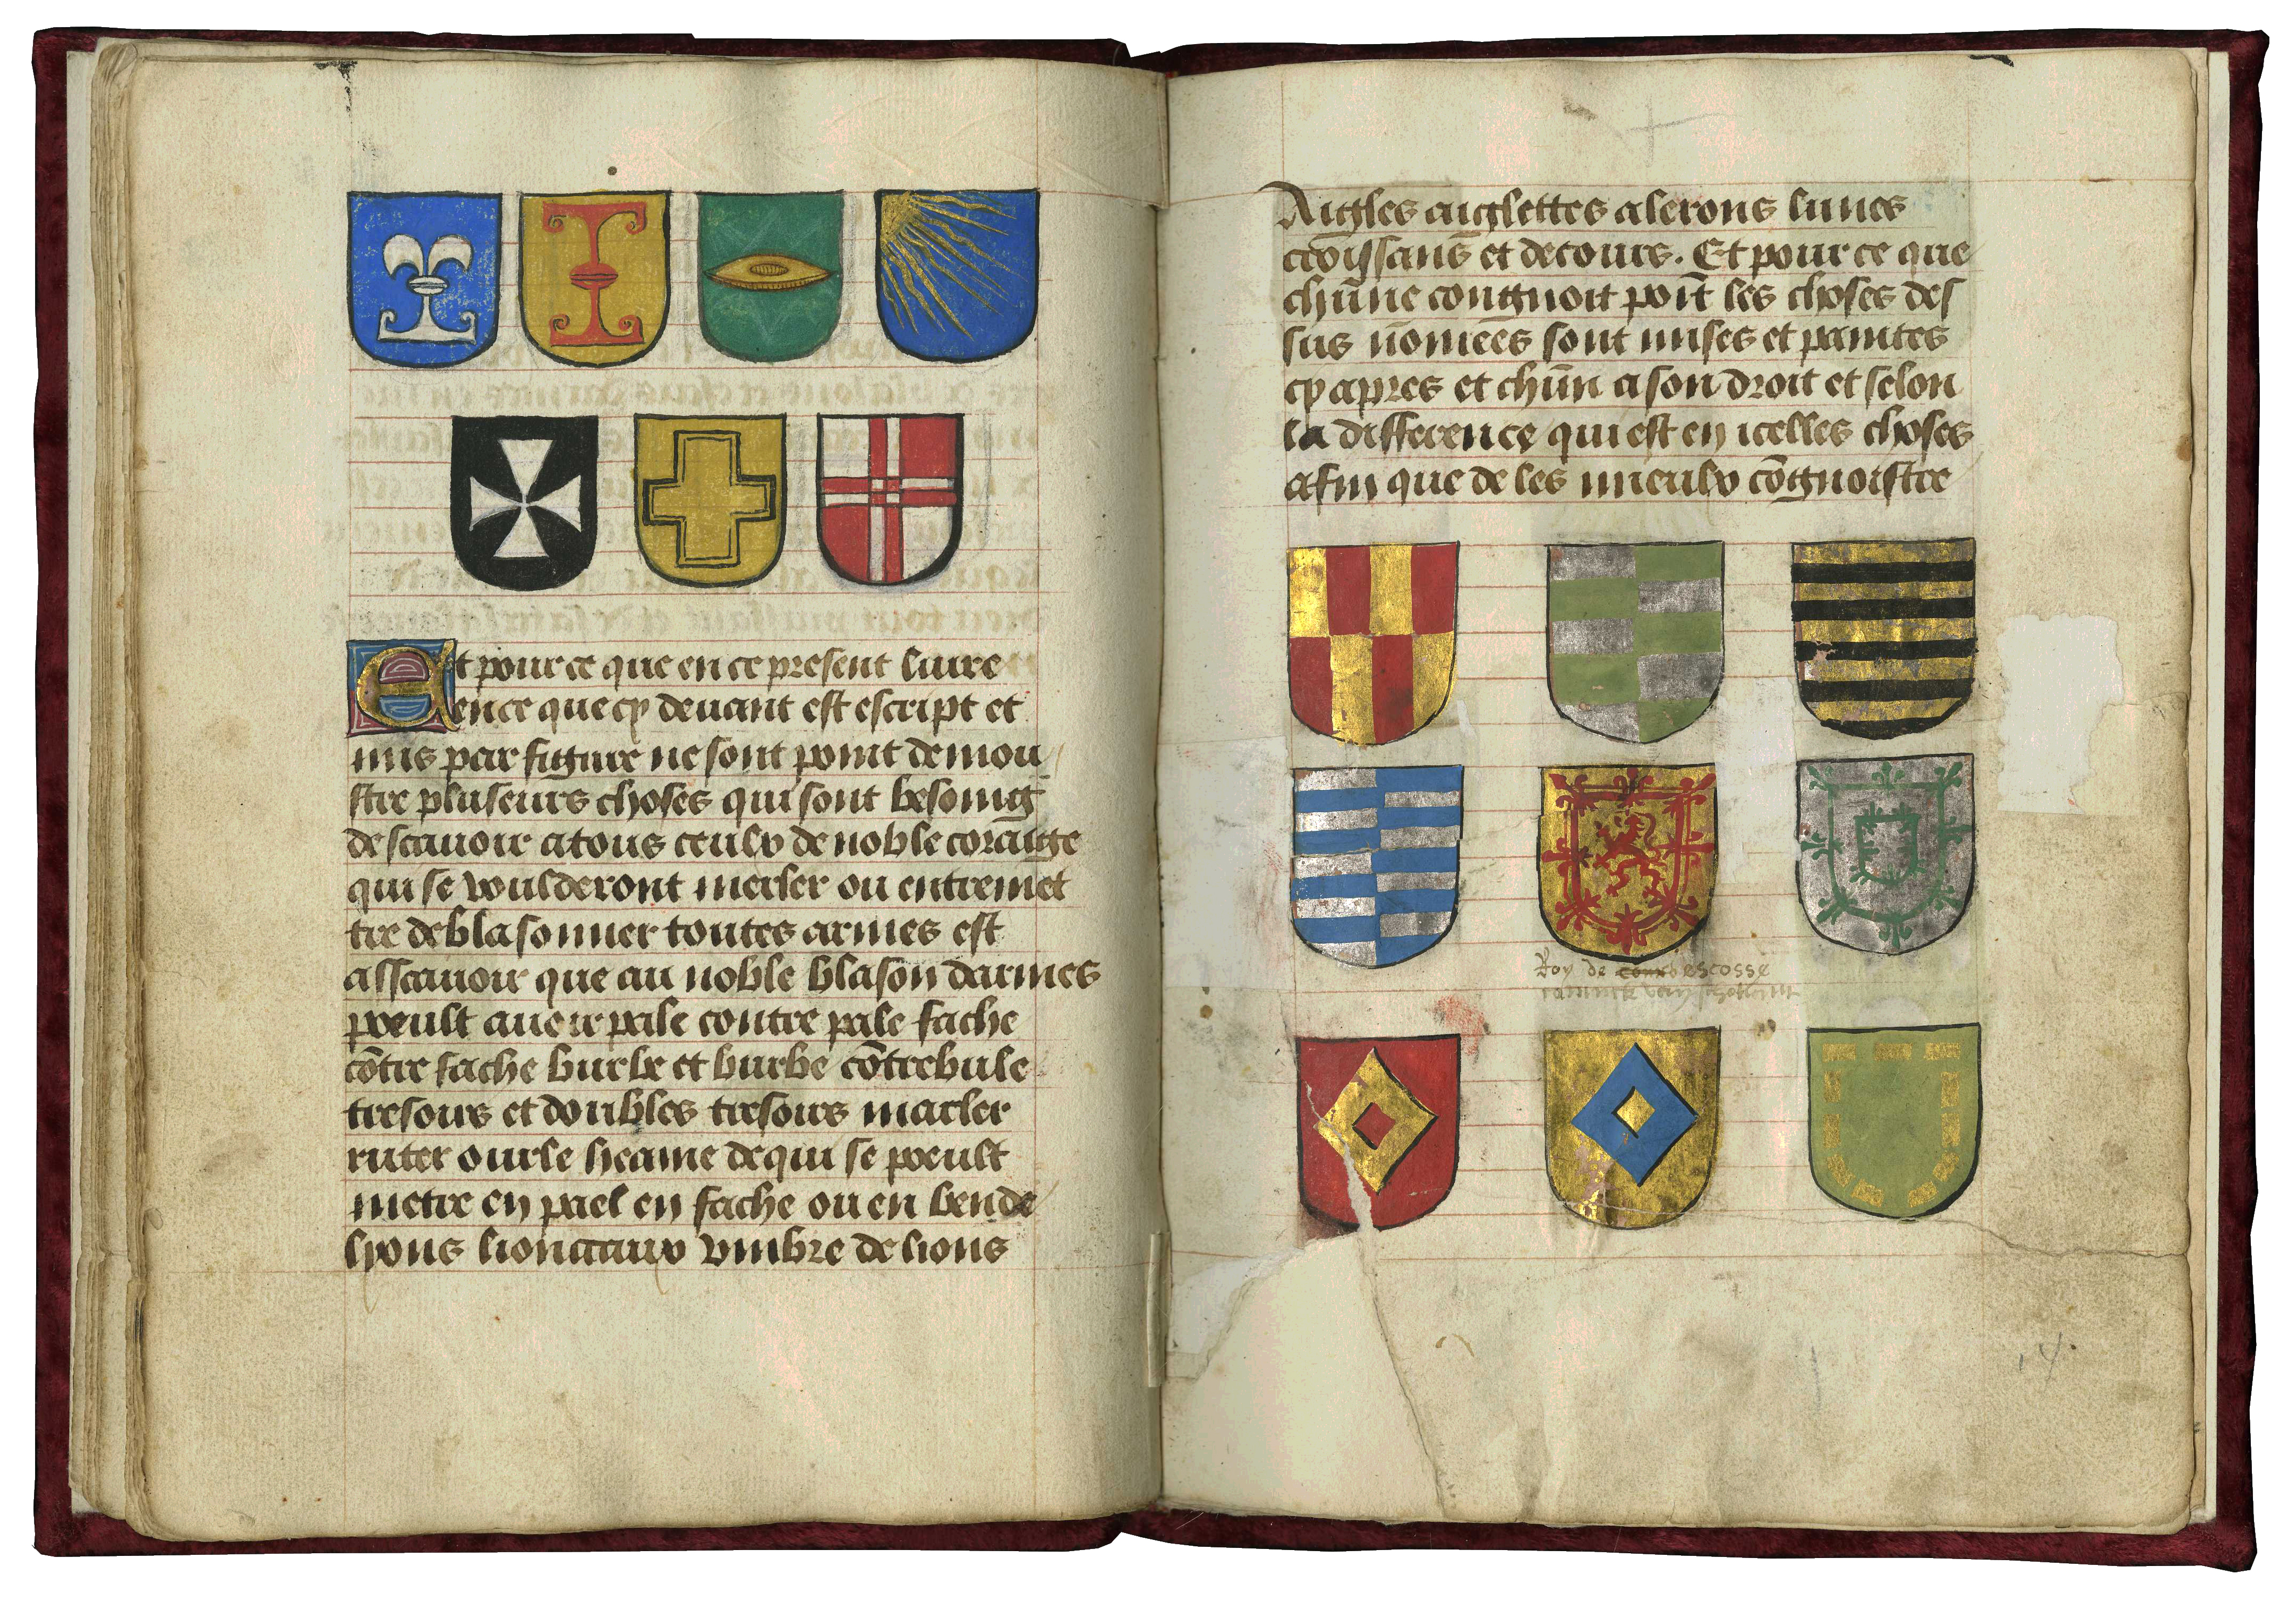 Et pour ce que en ce present liure
ence que cy deuant est escript et
mis par figure ne sont point demou
stre pluseurs choses qui sont besoing
de scauoir a tous ceulx de noble coraige
qui se voulderont mesler ou entremet
tre de blasonner toutes armes est
asscauoir que au noble blason darmes
poeult auoir pale contre pale fache
cōtre fache burbe et burbe cōtrebule
tresours et doubles tresours macler
ruter ourle heame de qui se poeult
metre en pael en fache ou en bende
lyons lionceaux vmbre de lions
Aigles aiglettes alerons lunes
croissans et decours. Et pour ce que
chūne congnoit poīt les choses des
sus nōmees sont mises et paintes
cy apres et chūn a son droit et selon
la difference qui est en icelles choses
afin que de les mieulx cōgnoistre
Roy de escosse